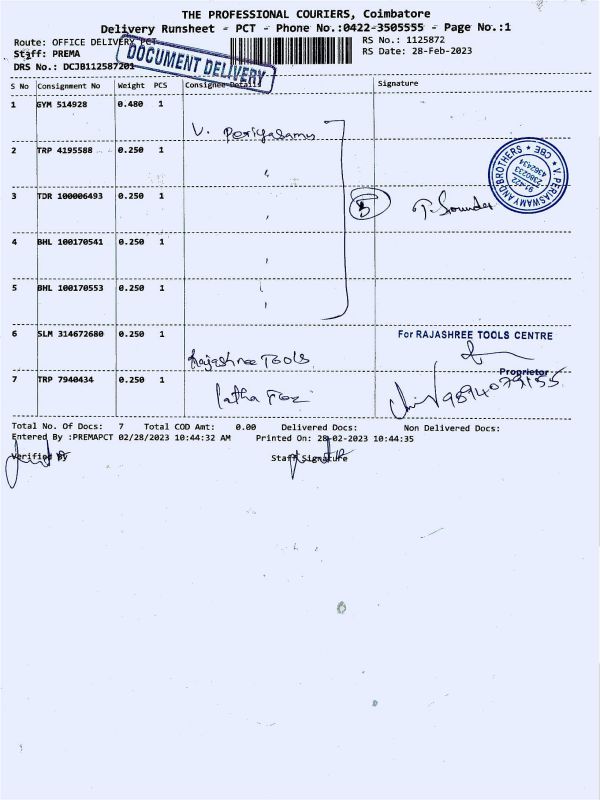 THE PROFESSIONAL COURIERS, Coimbatore
Delivery Runsheet - PCT - Phone No.:0422-3505555 - Page No.:1
Route: OFFICE DELIVERY PCT
RS No.: 1125872
Staff: PREMA
RS Date: 28-Feb-2023
DRS No.: DCJ0112587201
DOCUMENT DELIVERY
S No Consignment No Weight PCS Consignee Details Signature
1 GYM 514928 0.480 1
V. Periyasamy
2 TRP 4195588 0.250 1
V. PERIASWAMY AND BROTHERS * CBE *
3 TDR 100006493 0.250 1
5
4 BHL 100170541 0.250 1
5 BHL 100170553 0.250 1
6 SLM 314672680 0.250 1
For RAJASHREE TOOLS CENTRE
Rajashree TOOLS
Proprietor
7 TRP 7940434 0.250 1
latha
Total No. Of Docs: 7 Total COD Amt: 0.00 Delivered Docs: Non Delivered Docs:
Entered By :PREMAPCT 02/28/2023 10:44:32 AM Printed On: 28-02-2023 10:44:35
Verified By Staff Signature